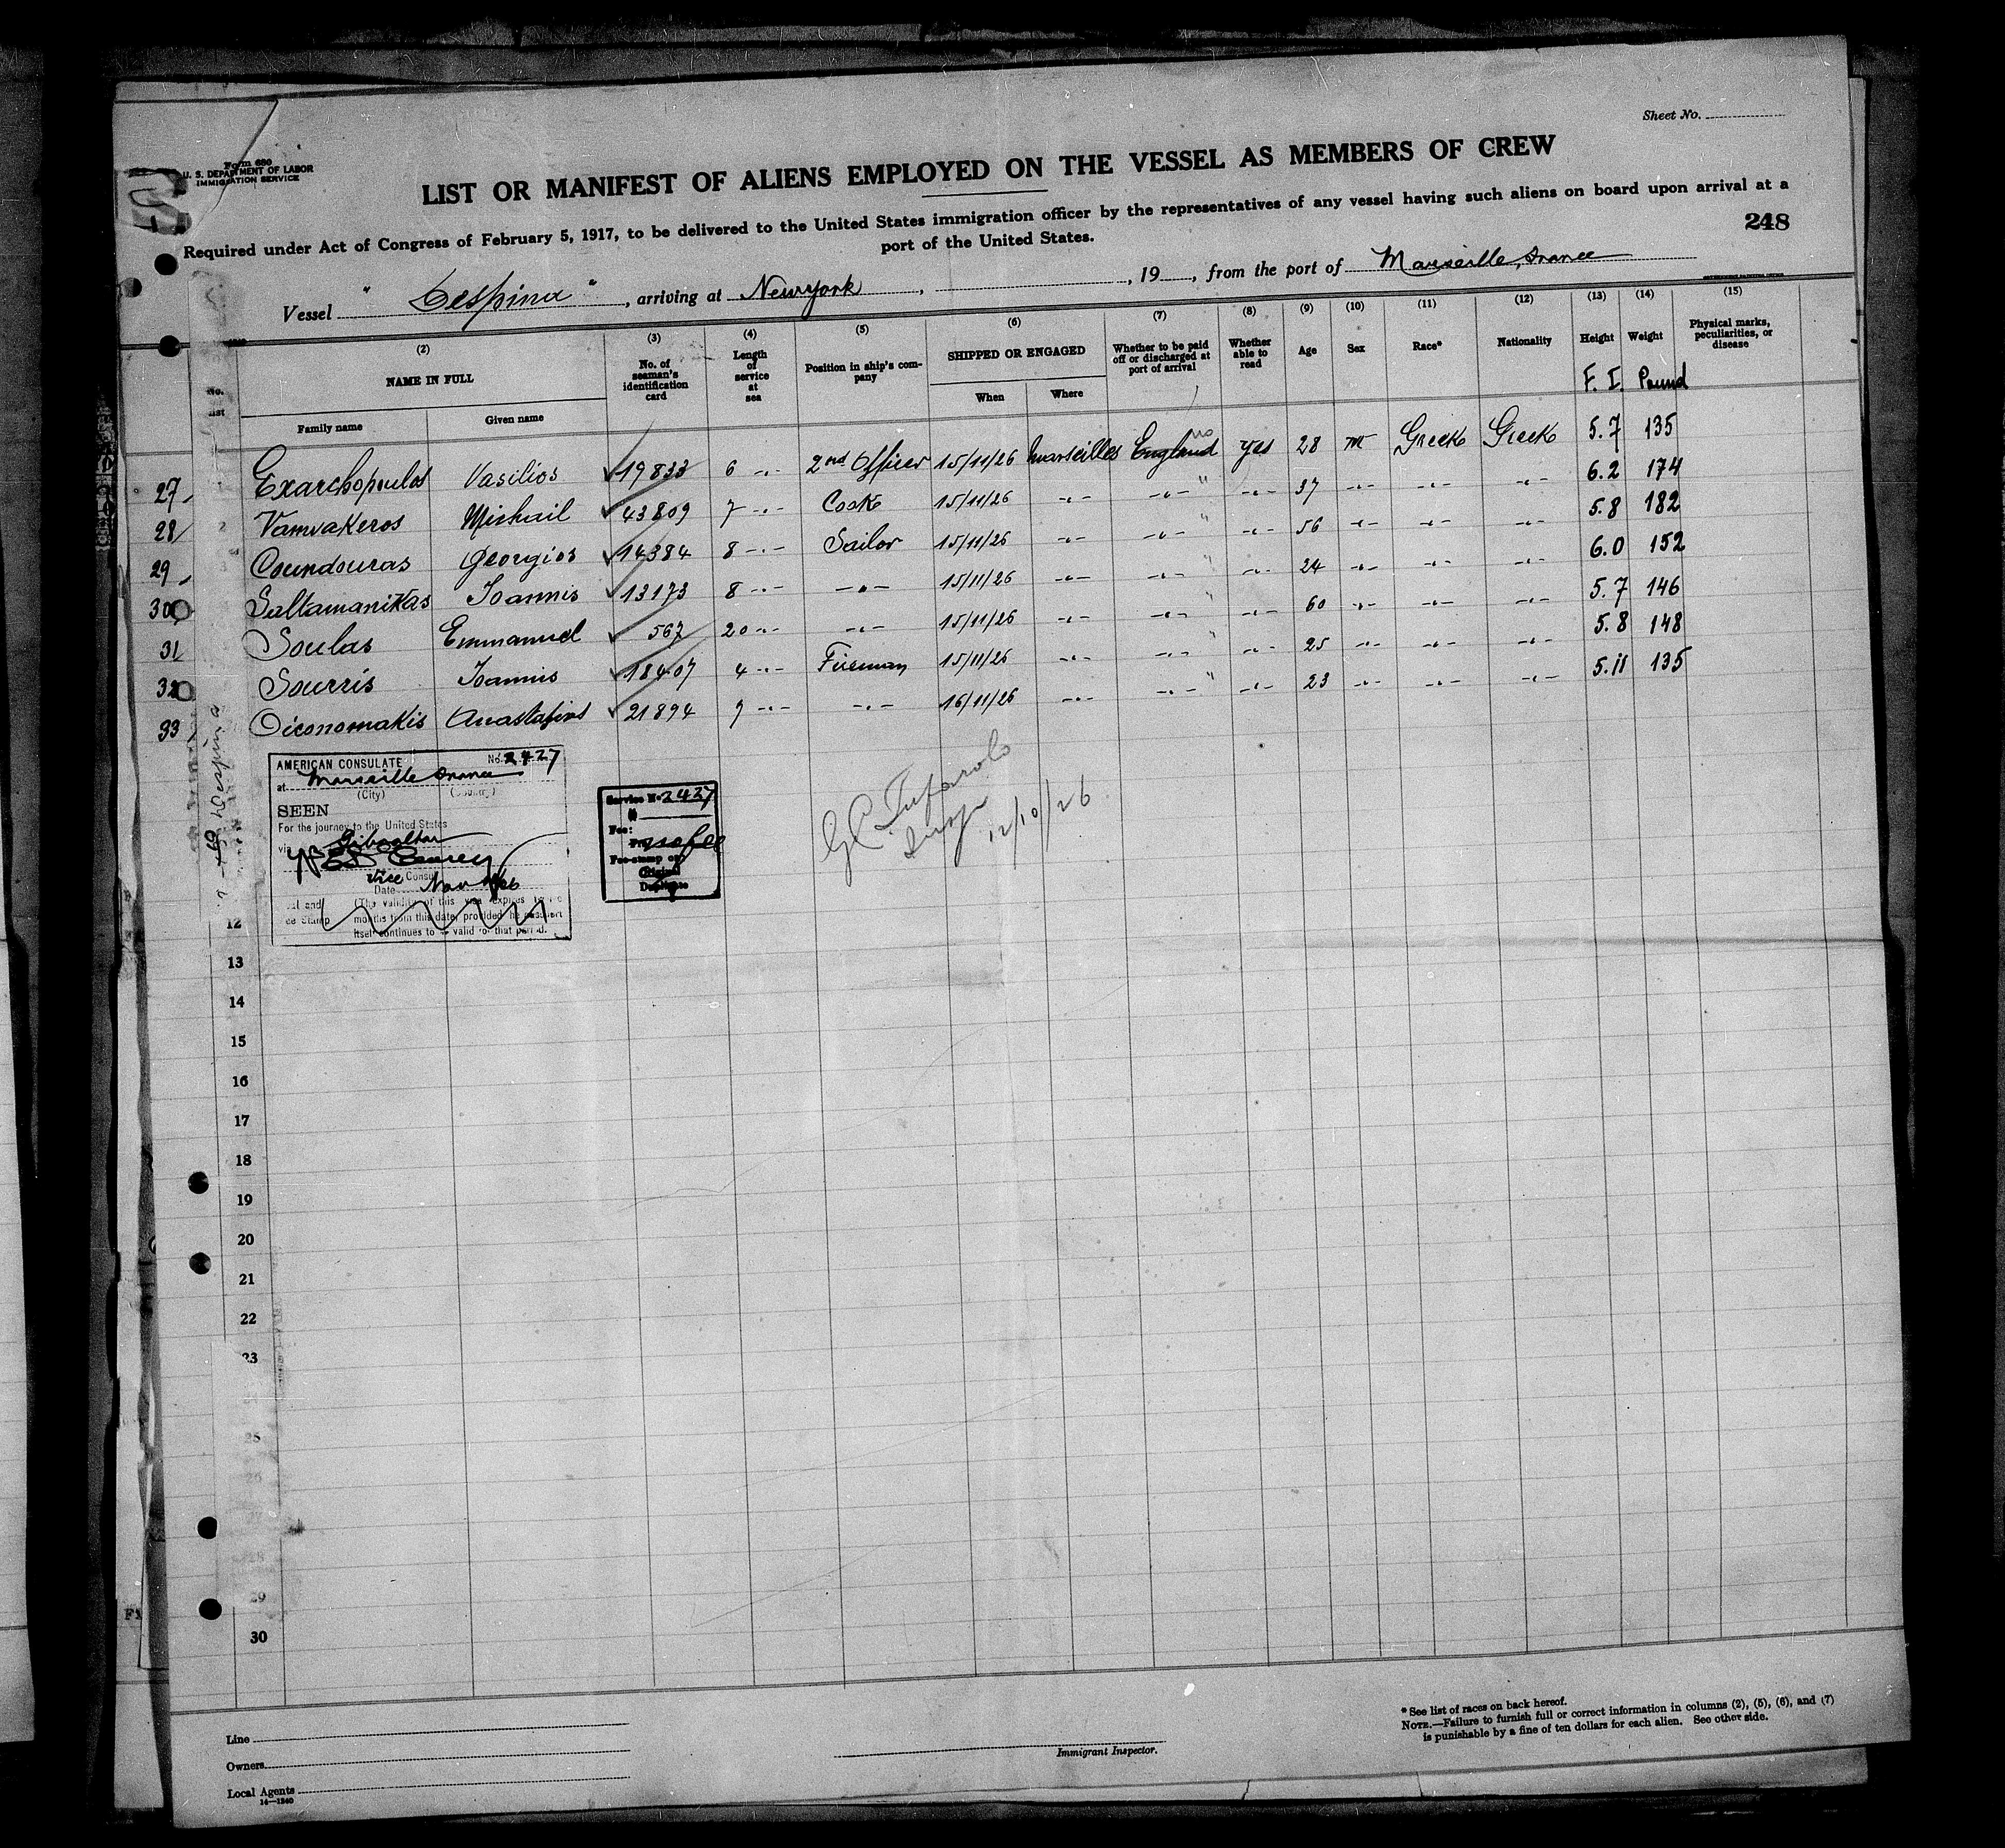 Sheet No.
Form 680
U. S. DEPARTMENT OF LABOR
IMMIGRATION SERVICE
LIST OR MANIFEST OF ALIENS EMPLOYED ON THE VESSEL AS MEMBERS OF CREW
Required under Act of Congress of February 5, 1917, to be delivered to the United States immigration officer by the representatives of any vessel having such aliens on board upon arrival at a
port of the United States.
248
Vessel "Despina", arriving at New york, , 19 , from the port of Marseille, France
(2) (3) (4) (5) (6) (7) (8) (9) (10) (11) (12) (13) (14) (15)
No. list NAME IN FULL No. of seaman's identification card Length of service at sea Position in ship's company SHIPPED OR ENGAGED Whether to be paid off or discharged at port of arrival Whether able to read Age Sex Race* Nationality Height Weight Physical marks, peculiarities, or disease
Family name Given name When Where F. I. Pound
27 Exarchopoulos Vasilios 19833 6 -.- 2nd Officer 15/11/26 Marseilles England no yes 28 m Greek Greek 5.7 135
28 Vamvakeros Mishail 43809 7 -.- Cook 15/11/26 -.- -.- " -.- 37 -.- -.- -.- 6.2 174
29 Coundouras Georgios 14384 8 -.- Sailor 15/11/26 -.- -.- " -.- 56 -.- -.- -.- 5.8 182
30 Saltamanikas Ioannis 13173 8 -.- -.- 15/11/26 -.- -.- " -.- 24 -.- -.- -.- 6.0 152
31 Soulas Emmanuel 567 20 -.- -.- 15/11/26 -.- -.- " -.- 60 -.- -.- -.- 5.7 146
32 Sourris Ioannis 18407 4 -.- Fireman 15/11/26 -.- -.- " -.- 25 -.- -.- -.- 5.8 148
33 Oiconomakis Anastasios 21894 9 -.- -.- 16/11/26 -.- -.- " -.- 23 -.- -.- -.- 5.11 135
AMERICAN CONSULATE No. 2427
at Marseille France
(City) (Country)
SEEN
For the journey to the United States
via Gibraltar
Vice Consul
Date Nov
(The validity of this visa expires
months from this date, provided the passport
itself continues to be valid for that period.
Service No 2427
Fee: no fee
Fee-stamp on
Original
Duplicate
12/10/26
Despina
12
13
14
15
16
17
18
19
20
21
22
23
25
26
28
29
30
Line
Owners
Local Agents
14—1240
Immigrant Inspector.
* See list of races on back hereof.
NOTE.—Failure to furnish full or correct information in columns (2), (5), (6), and (7)
is punishable by a fine of ten dollars for each alien. See other side.